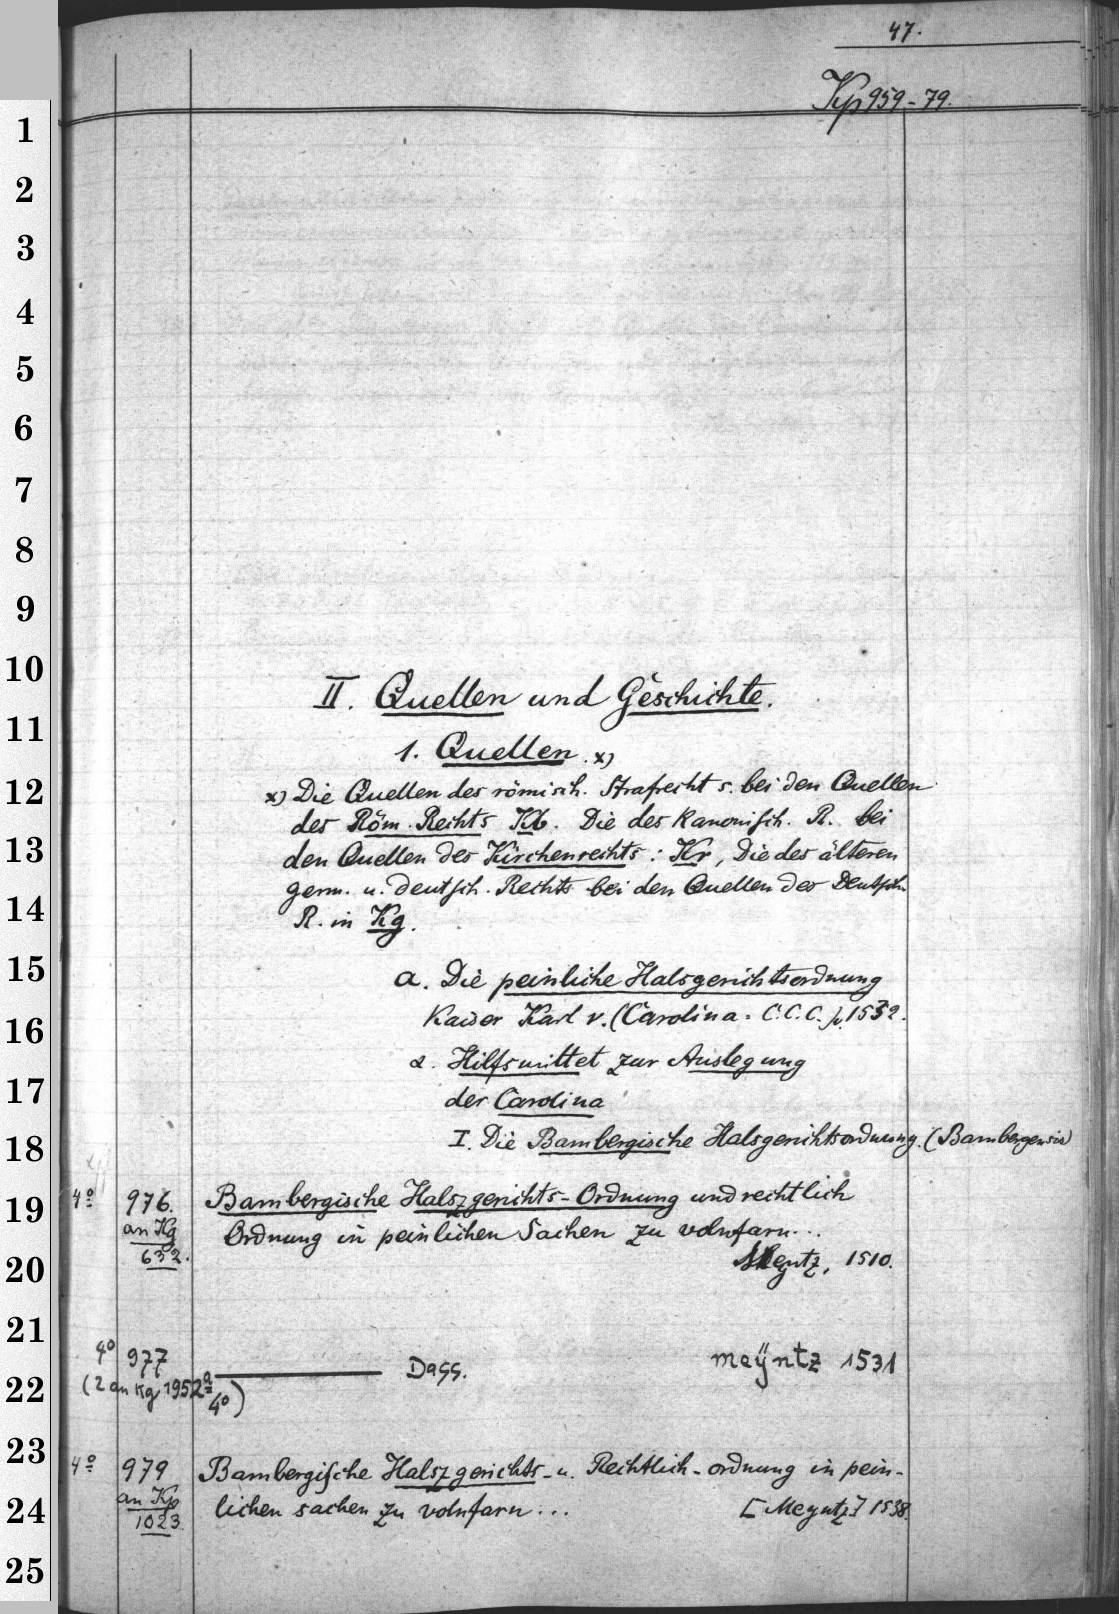 47.
Kp 959-79.
1
2
3
4
5
6
7
8
9
10
II. Quellen und Geschichte.
11
1. Quellen. x)
12
x) Die Quellen des römisch. Strafrecht s. bei den Quellen
des Röm. Rechts Kb. Die des Kanonisch. R. bei
13
den Quellen des Kirchenrechts: Kr, Die des älteren
germ. u. deutsch. Rechts bei den Quellen des Deutsch.
14
R. in Kg.
15
a. Die peinliche Halsgerichtsordnung
16
Kaiser Karl V. (Carolina. C.C.C.) v. 1532.
α. Hilfsmittel zur Auslegung
17
der Carolina
18
I. Die Bambergische Halsgerichtsordnung. (Bambergensis)
19
4º 976. Bambergische Halszgerichts-Ordnung und rechtlich
an Kg Ordnung in peinlichen Sachen zu volnfarn...
20
632. Meyntz, 1510.
21
4º 977 ——— Dass. meÿntz 1531
22
(2 an Kg 1952ª 4º)
23
4º 979 Bambergische Halszgerichts- u. Rechtlich-ordnung in pein-
24
an Kp lichen sachen zu volnfarn... [Meyntz] 1538.
1023.
25